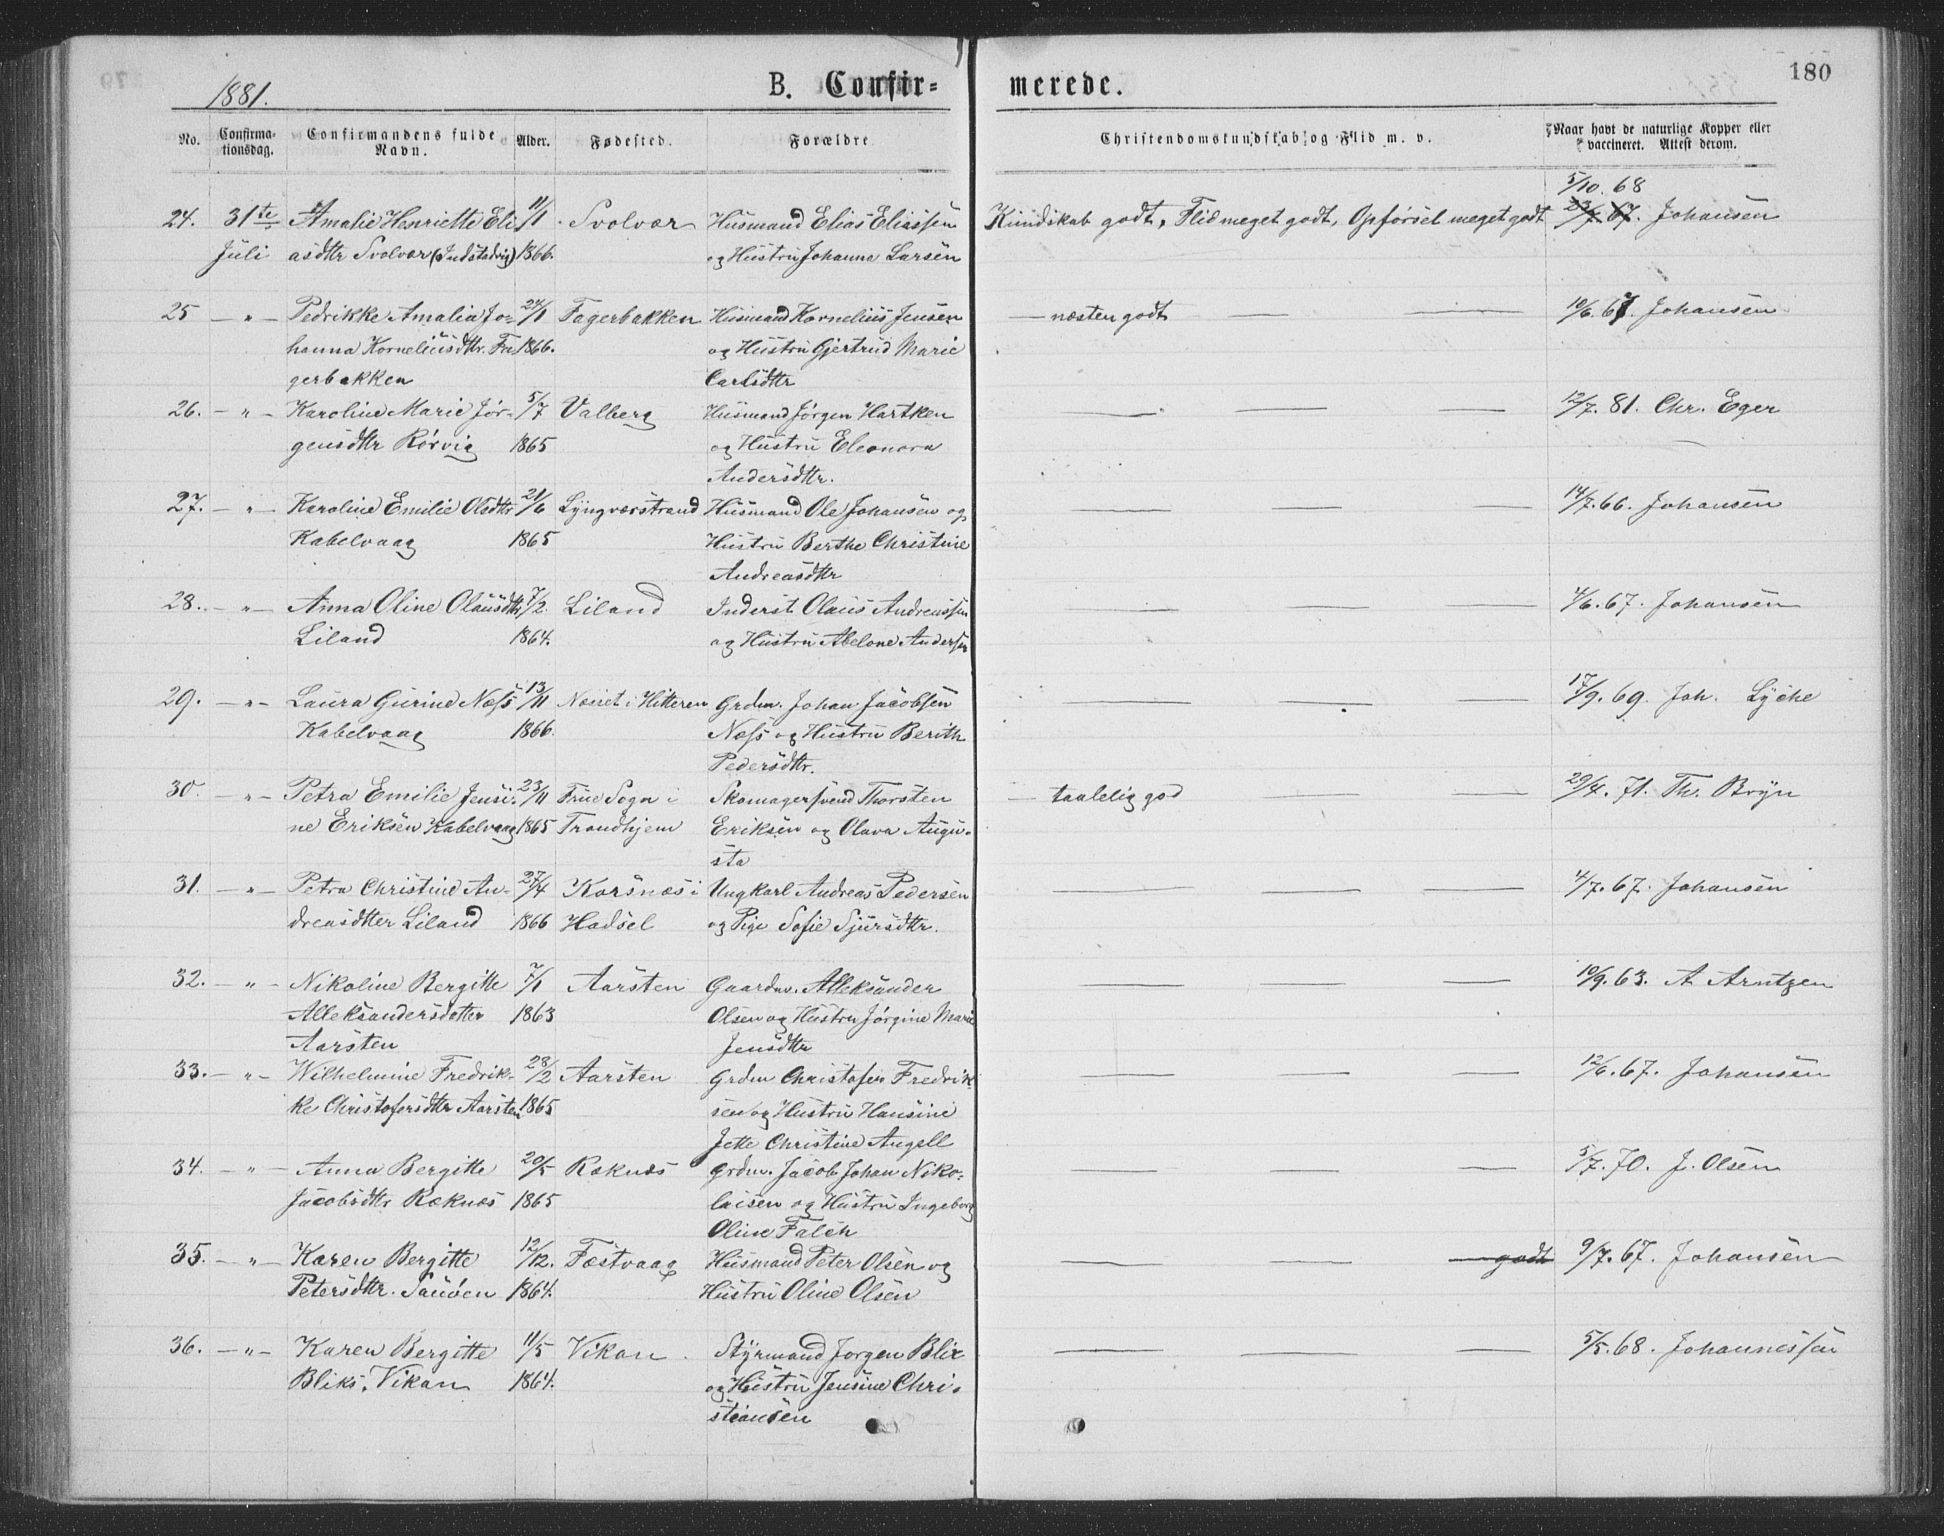 180
1881.
B. Confir-
merede.
No.
Confirma-
tionsdag.
Confirmandens fulde
Navn.
Alder.
Fødested.
Forældre
Christendomskundskab og Flid m. v.
Naar havt de naturlige Kopper eller
vaccineret. Attest derom.
5/10. 68
24. 31te Amalie Henriette Eli 11/1 Svolvær Husmand Elias Eliassen Kundskab godt, Flid meget godt, Opførsel meget godt 23/7. 67. Johansen
Juli asdtr Svolvær (Indstadvig) 1866. og Hustru Johanna Larsen
25 — " — Pedrikke Amalia Jo- 24/1 Fagerbakken Husmand Kornelius Jensen — næsten godt — — 10/6. 67. Johansen
hanna Korneliusdtr. Fa 1866. og Hustru Gjertrud Marie
gerbakken Carlsdtr
26. — " — Karoline Marie Jør- 5/7 Valberg Husmand Jørgen Hartken — — — 12/7. 81. Chr. Eger
gensdtr Rørvig 1865 og Hustru Eleonora
Andersdtr.
27. — " — Karoline Emilie Olsdtr 21/6 Lyngværstrand Husmand Ole Johansen og — — — 14/7. 66. Johansen
Kabelvaag 1865 Hustru Berthe Christine
Andreasdtr
28. — " — Anna Oline Olausdtr 7/2. Liland Inderst Olaus Andreassen — — — 4/6. 67. Johansen
Liland 1864. og Hustru Abelone Andersen
29. — " — Laura Gurine Næss 13/11 Næsset i Hitteren Grdm. Johan Jacobsen — — — 17/9. 69. Joh. Lyche
Kabelvaag 1866. Næss og Hustru Berith
Pedersdtr.
30. — " — Petra Emilie Jensi- 23/11 Frue Sogn i Skomagersvend Thorsten — taalelig god — — 29/4. 71. Th. Bryn
ne Eriksen Kabelvaag 1865 Trondhjem Eriksen og Olava Augu-
sta
31. — " — Petra Christine An- 27/4 Korsnæs i Ungkarl Andreas Pedersen — — — 4/7. 67. Johansen
dreasdtter Liland 1866 Hadsel og Pige Sofie Sjursdtr.
32. — " — Nikoline Bergitte 7/1 Aarsten Gaardm. Alleksander — — — 10/9. 63. A Arntzen
Alleksandersdatter 1863 Olsen og Hustru Jørgine Marie
Aarsten Jensdtr
33. — " — Wilhelmine Fredrik- 28/2 Aarsten Grdm Christofer Fredrik- — — — 12/6. 67. Johansen
ke Christofersdtr Aarsten 1865 sen og Hustru Hansine
Jette Christine Angell
34. — " — Anna Bergitte 20/5 Ræknæs Grdm. Jacob Johan Niko- — — — 5/7. 70. J. Olsen
Jacobsdtr Ræknæs 1865 laisen og Hustru Ingeborg
Oline Falch
35. — " — Karen Bergitte 12/12. Festvaag Husmand Peter Olsen og — — — godt 9/7. 67. Johansen
Petersdtr. Sauøen 1864. Hustru Oline Olsen
36. — " — Karen Bergitte 11/5 Vikan Styrmand Jørgen Blix — — — 5/5. 68. Johannessen
Bliks, Vikan 1864. og Hustru Jensine Chri-
stiansen